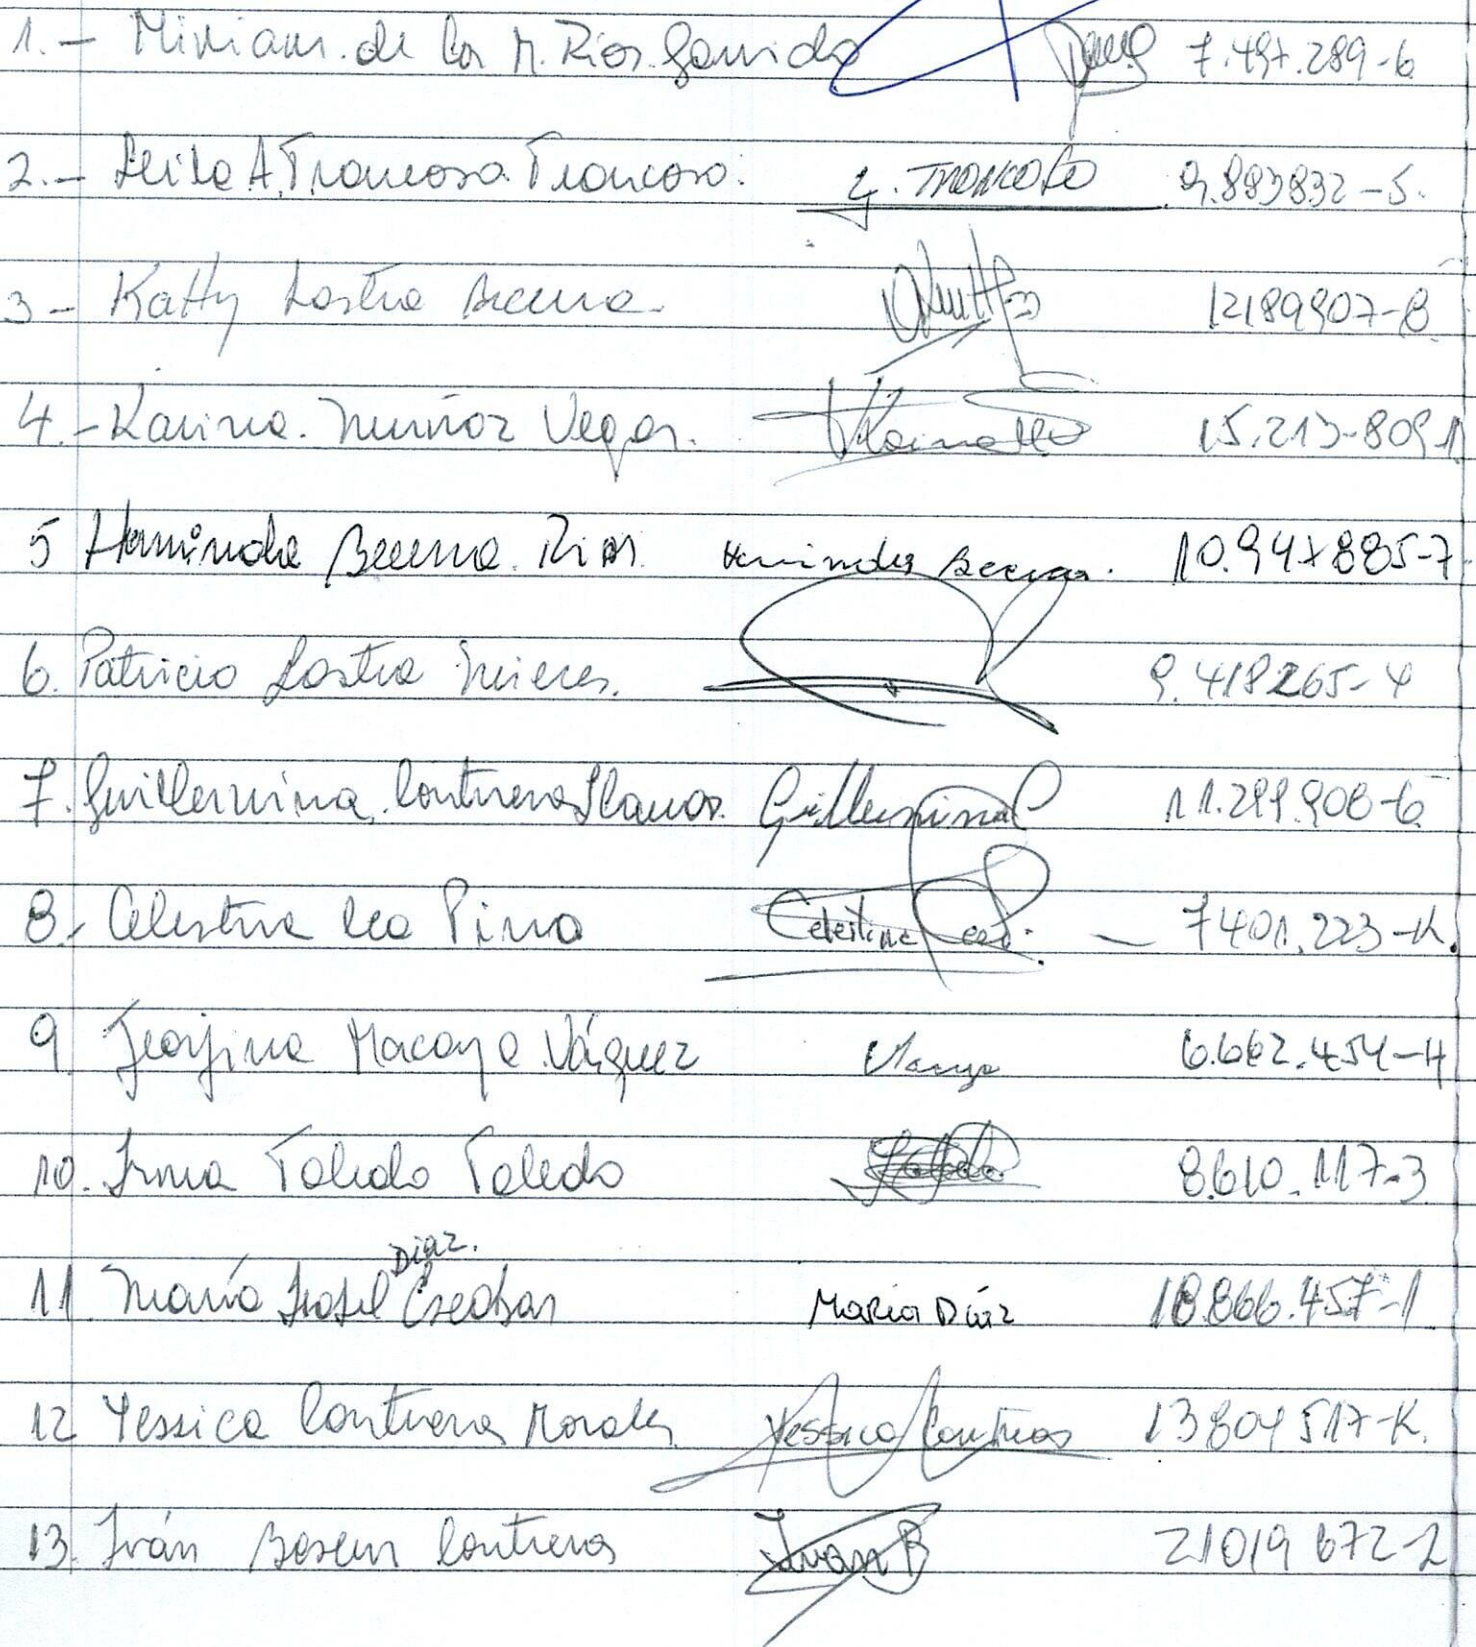 1.- Miriam. de las M. Rios. Garrido 7.497.289-6
2.- Leila A. Troncoso. Troncoso. L. TRONCOSO 9.883832-5.
3- Katty Lastra Becerra. 12189907-8
4.- Karina. Muñoz Vegas. 15.213-809-1
5 Herminda Becerra. Rios. Herminda Becerra. 10.947885-7
6. Patricio Lastra Mieres. 9.418265-4
7. Guillermina Contreras Llanos. Guillermina C 11.299.908-6
8.- Celestina Cea Pino Celestina Cea P. - 7401.223-K.
9 Georjina Macaya Vásquez Macaya 6.662.454-4
10. Irma Toledo Toledo Toledo 8.610.117-3
Diaz.
11 María Isabel Escobar Maria Díaz 18.866.457-1
12 Yessica Contreras Morales Yessica Contreras 13804517-K.
13. Iván Contreras Ivan B 21019672-2